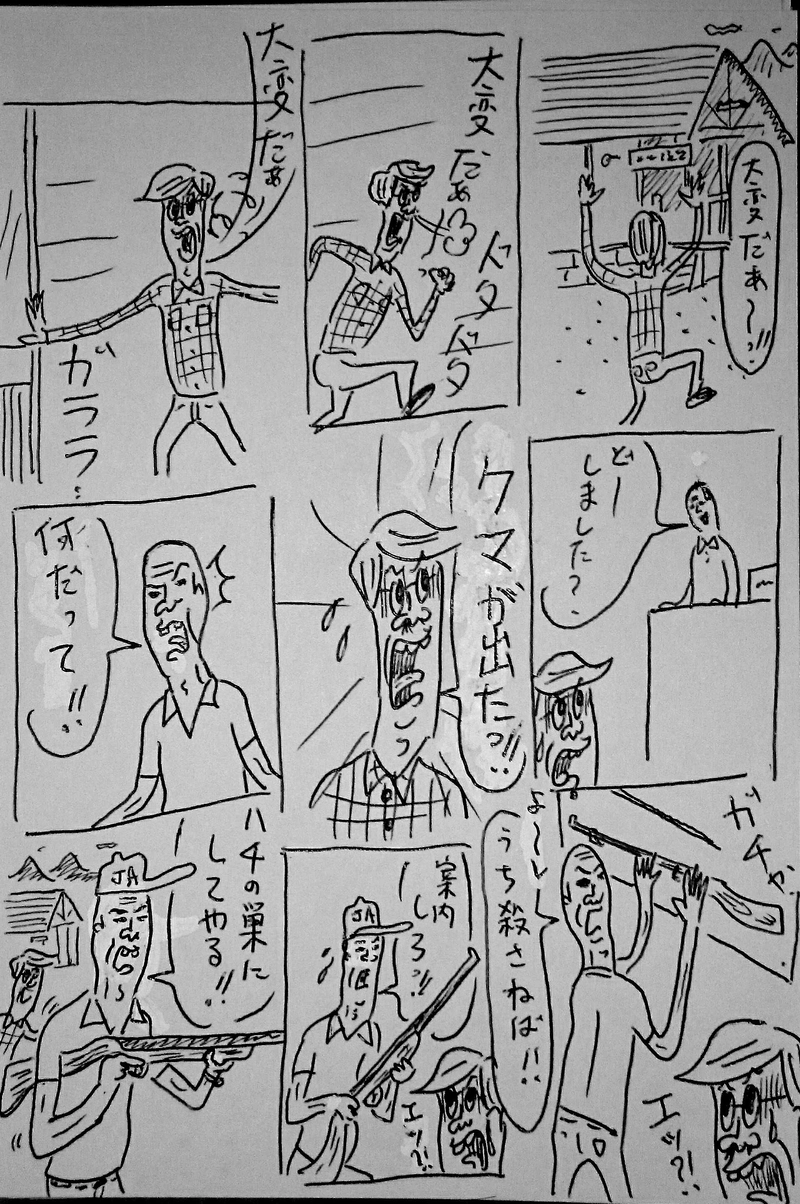 大変だぁ〜っ!!
大変だぁ
ドタ
ドタ
大変だぁ
ガララ
どー
しました?
クマが出たっ!!
何だって!!
ガチャ
よ〜し
うち殺さねば!!
エッ?!
案内
しろっ!!
JA
エッ?!
ハチの巣に
してやる!!
JA